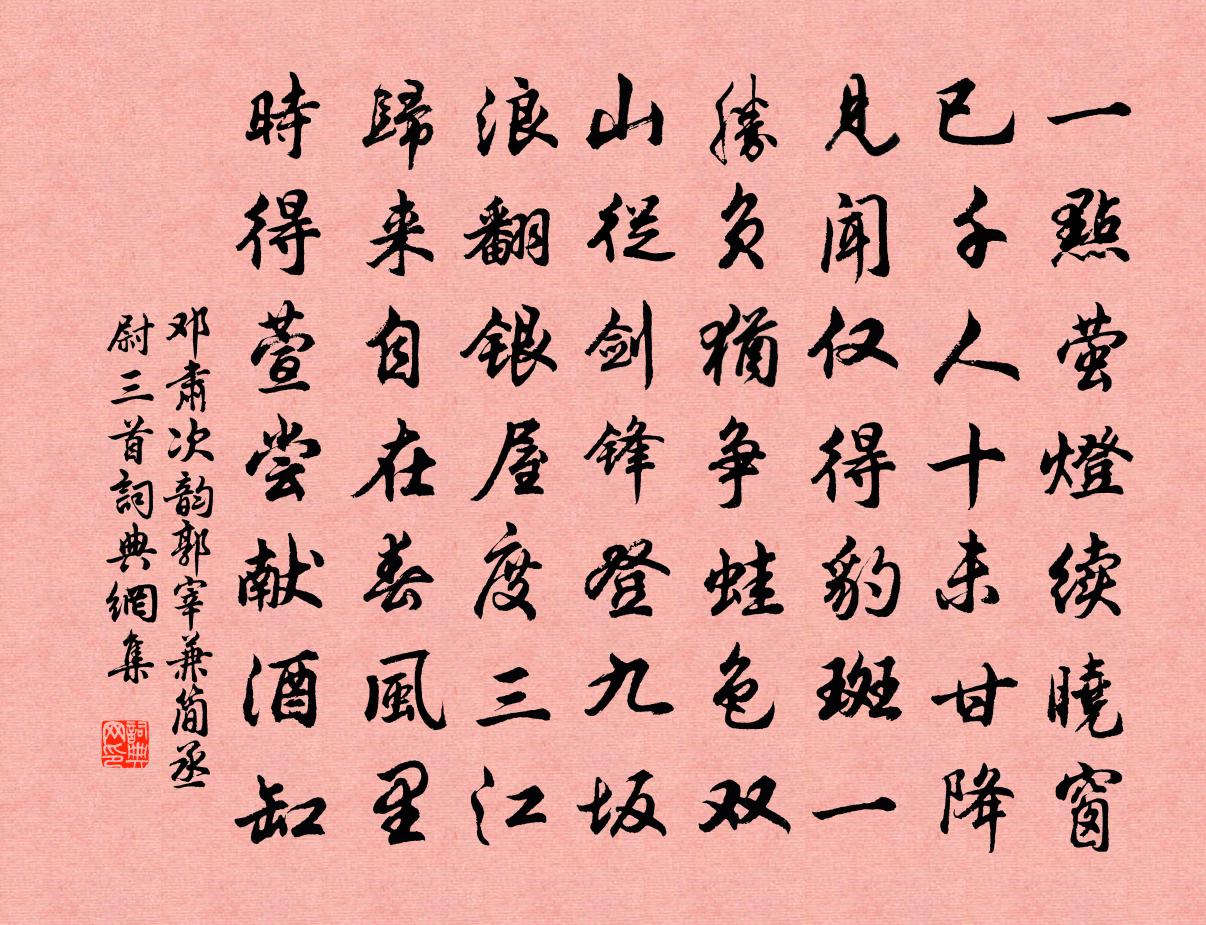 一點萤燈续曉窗
已千人十未甘降
見闻仅得豹斑一
勝负猶争蛙色双
山從剑锋登九坂
浪翻银屋度三江
歸来自在春風里
時得萱尝献酒缸
邓肃次韵郭宰兼简丞
尉三首詞典網集
詞典网印